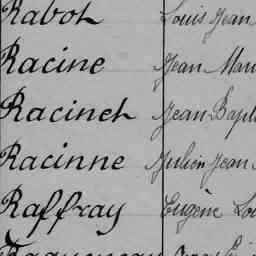 Rabot Louis Jean
Racine Jean Mari
Racinet Jean Bapt
Racinne Julien Jean
Raffray Eugène Lou